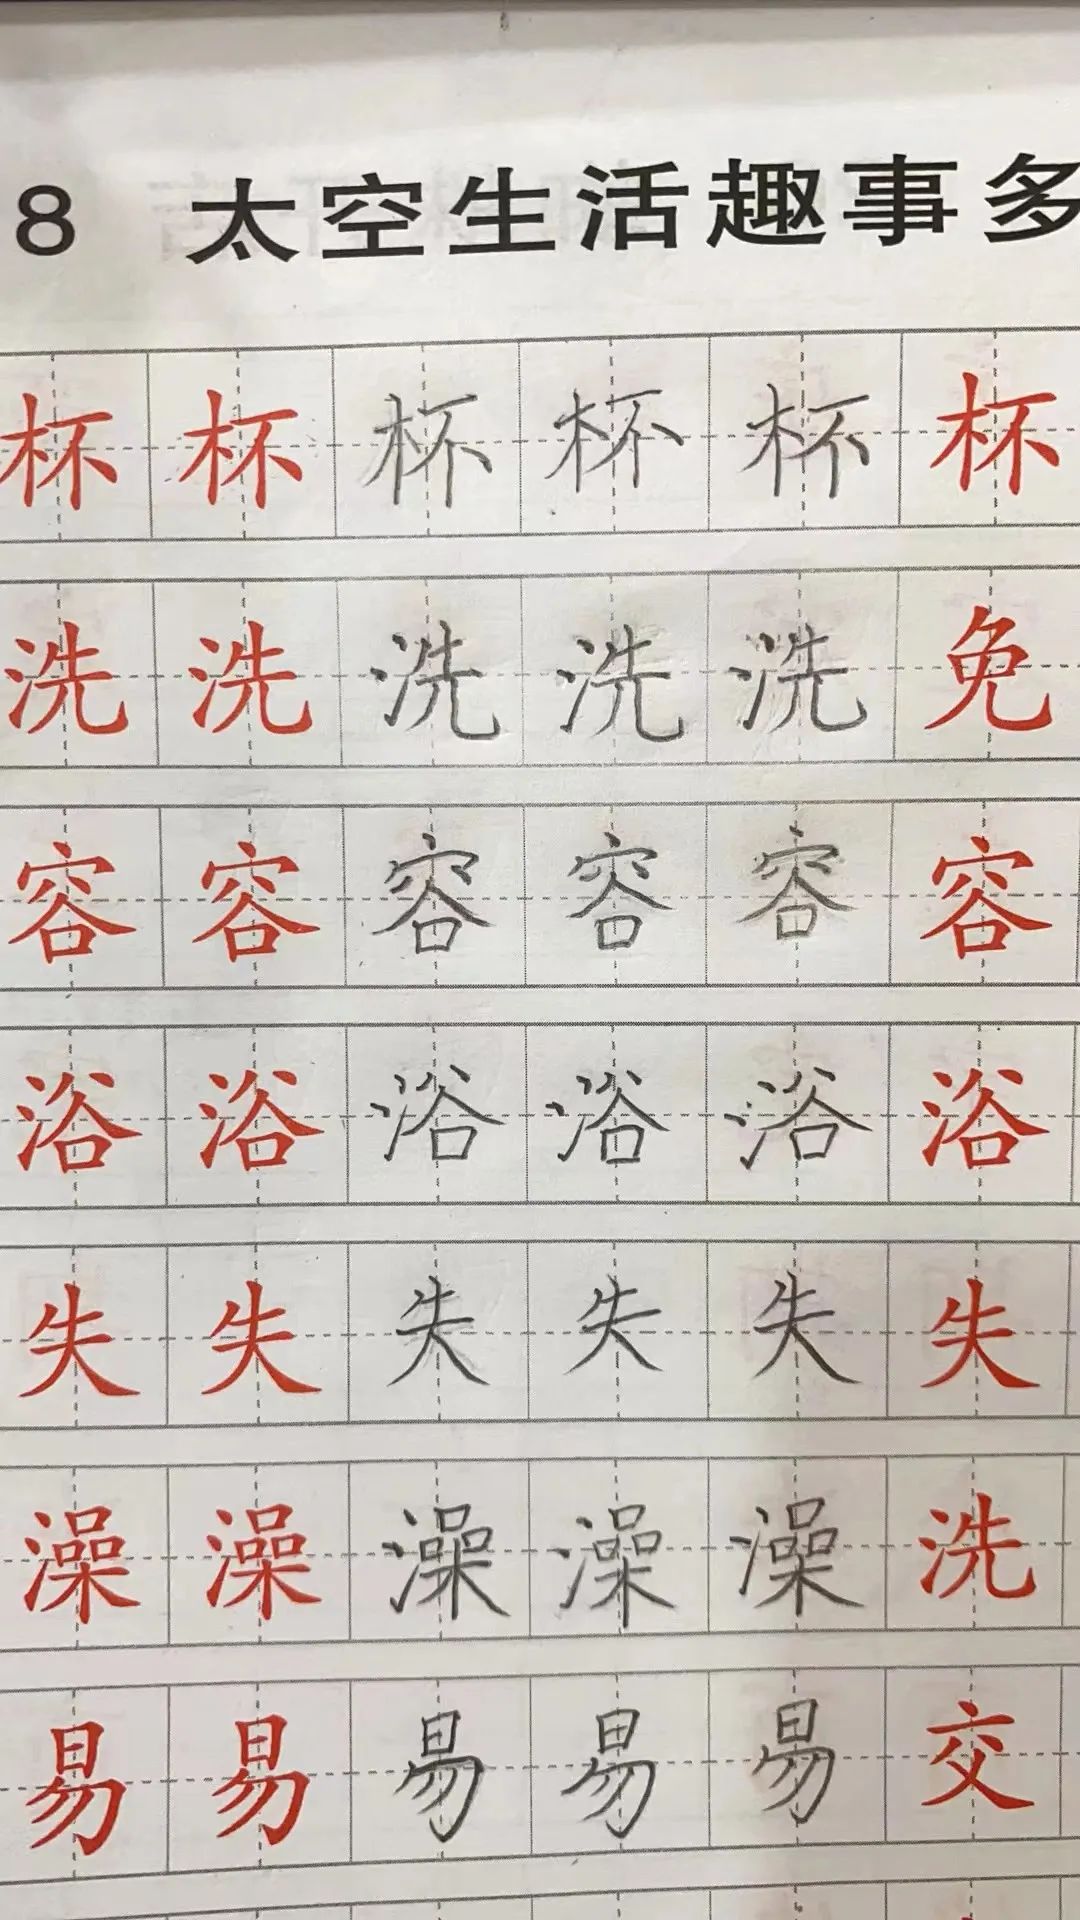 8 太空生活趣事多
杯 杯 杯 杯 杯 杯
洗 洗 洗 洗 洗 免
容 容 容 容 容 容
浴 浴 浴 浴 浴 浴
失 失 失 失 失 失
澡 澡 澡 澡 澡 洗
易 易 易 易 易 交